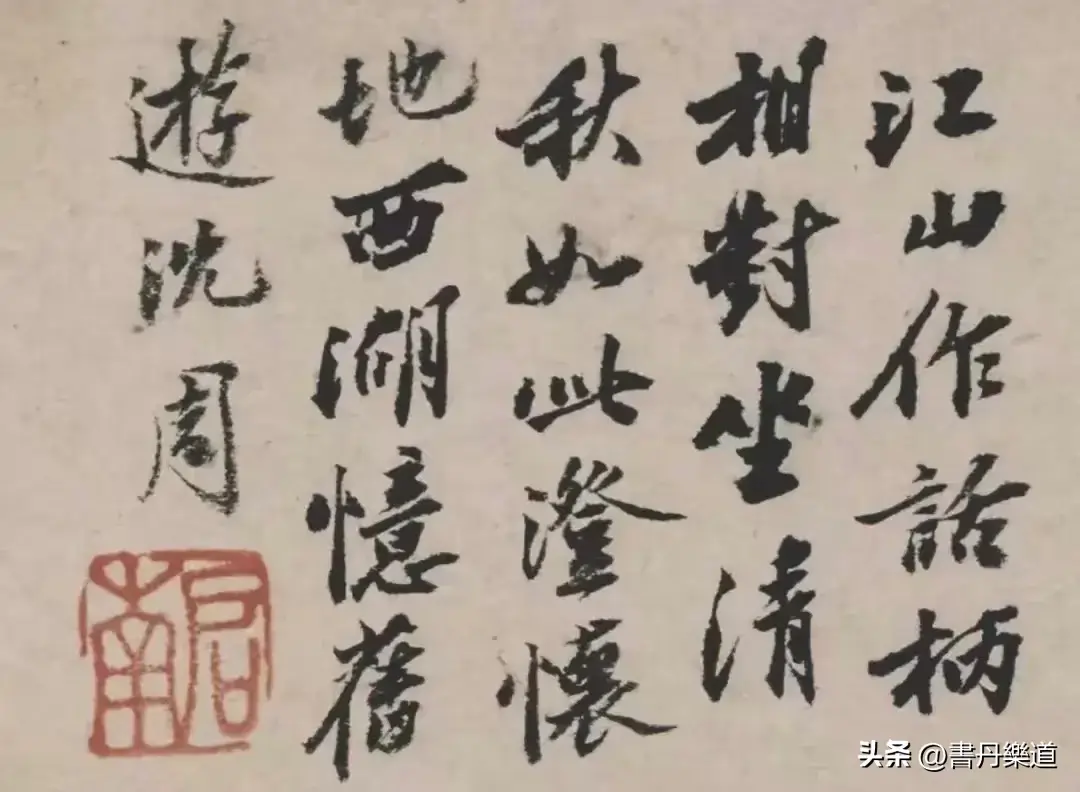 江山作話柄
相對坐清
秋如此澄懷
地西湖憶舊
遊沈周
啟南
头条 @書丹樂道